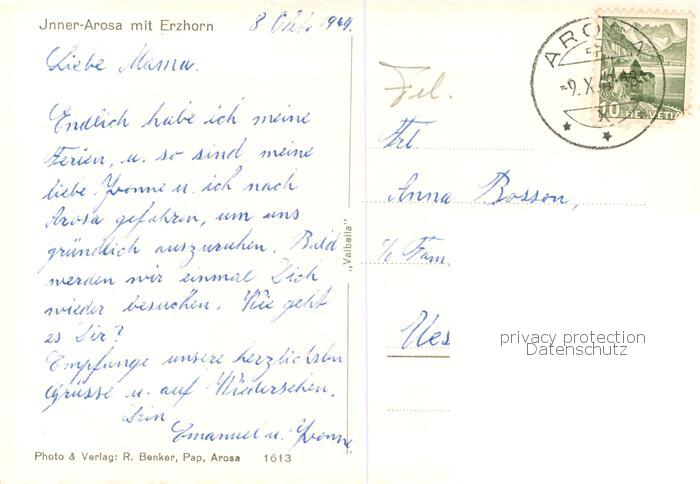 Jnner-Arosa mit Erzhorn
8. Okto. 1944.
Liebe Mama.
Endlich habe ich meine
Ferien, u. so sind meine
liebe Yvonne u. ich nach
Arosa gefahren, um uns
gründlich auszuruhen. Bald
werden wir einmal Dich
wieder besuchen. Wie geht
es Dir?
Empfange unsere herzlichsten
Grüsse u. auf Wiedersehen.
Dein
Emanuel u. Yvonne.
Photo & Verlag: R. Benker, Pap, Arosa 1613
„Valbella"
AROSA
-9.X.
10 HELVETIA
Frl.
Anna Bosson,
c/o Fam.
Ues
privacy protection
Datenschutz